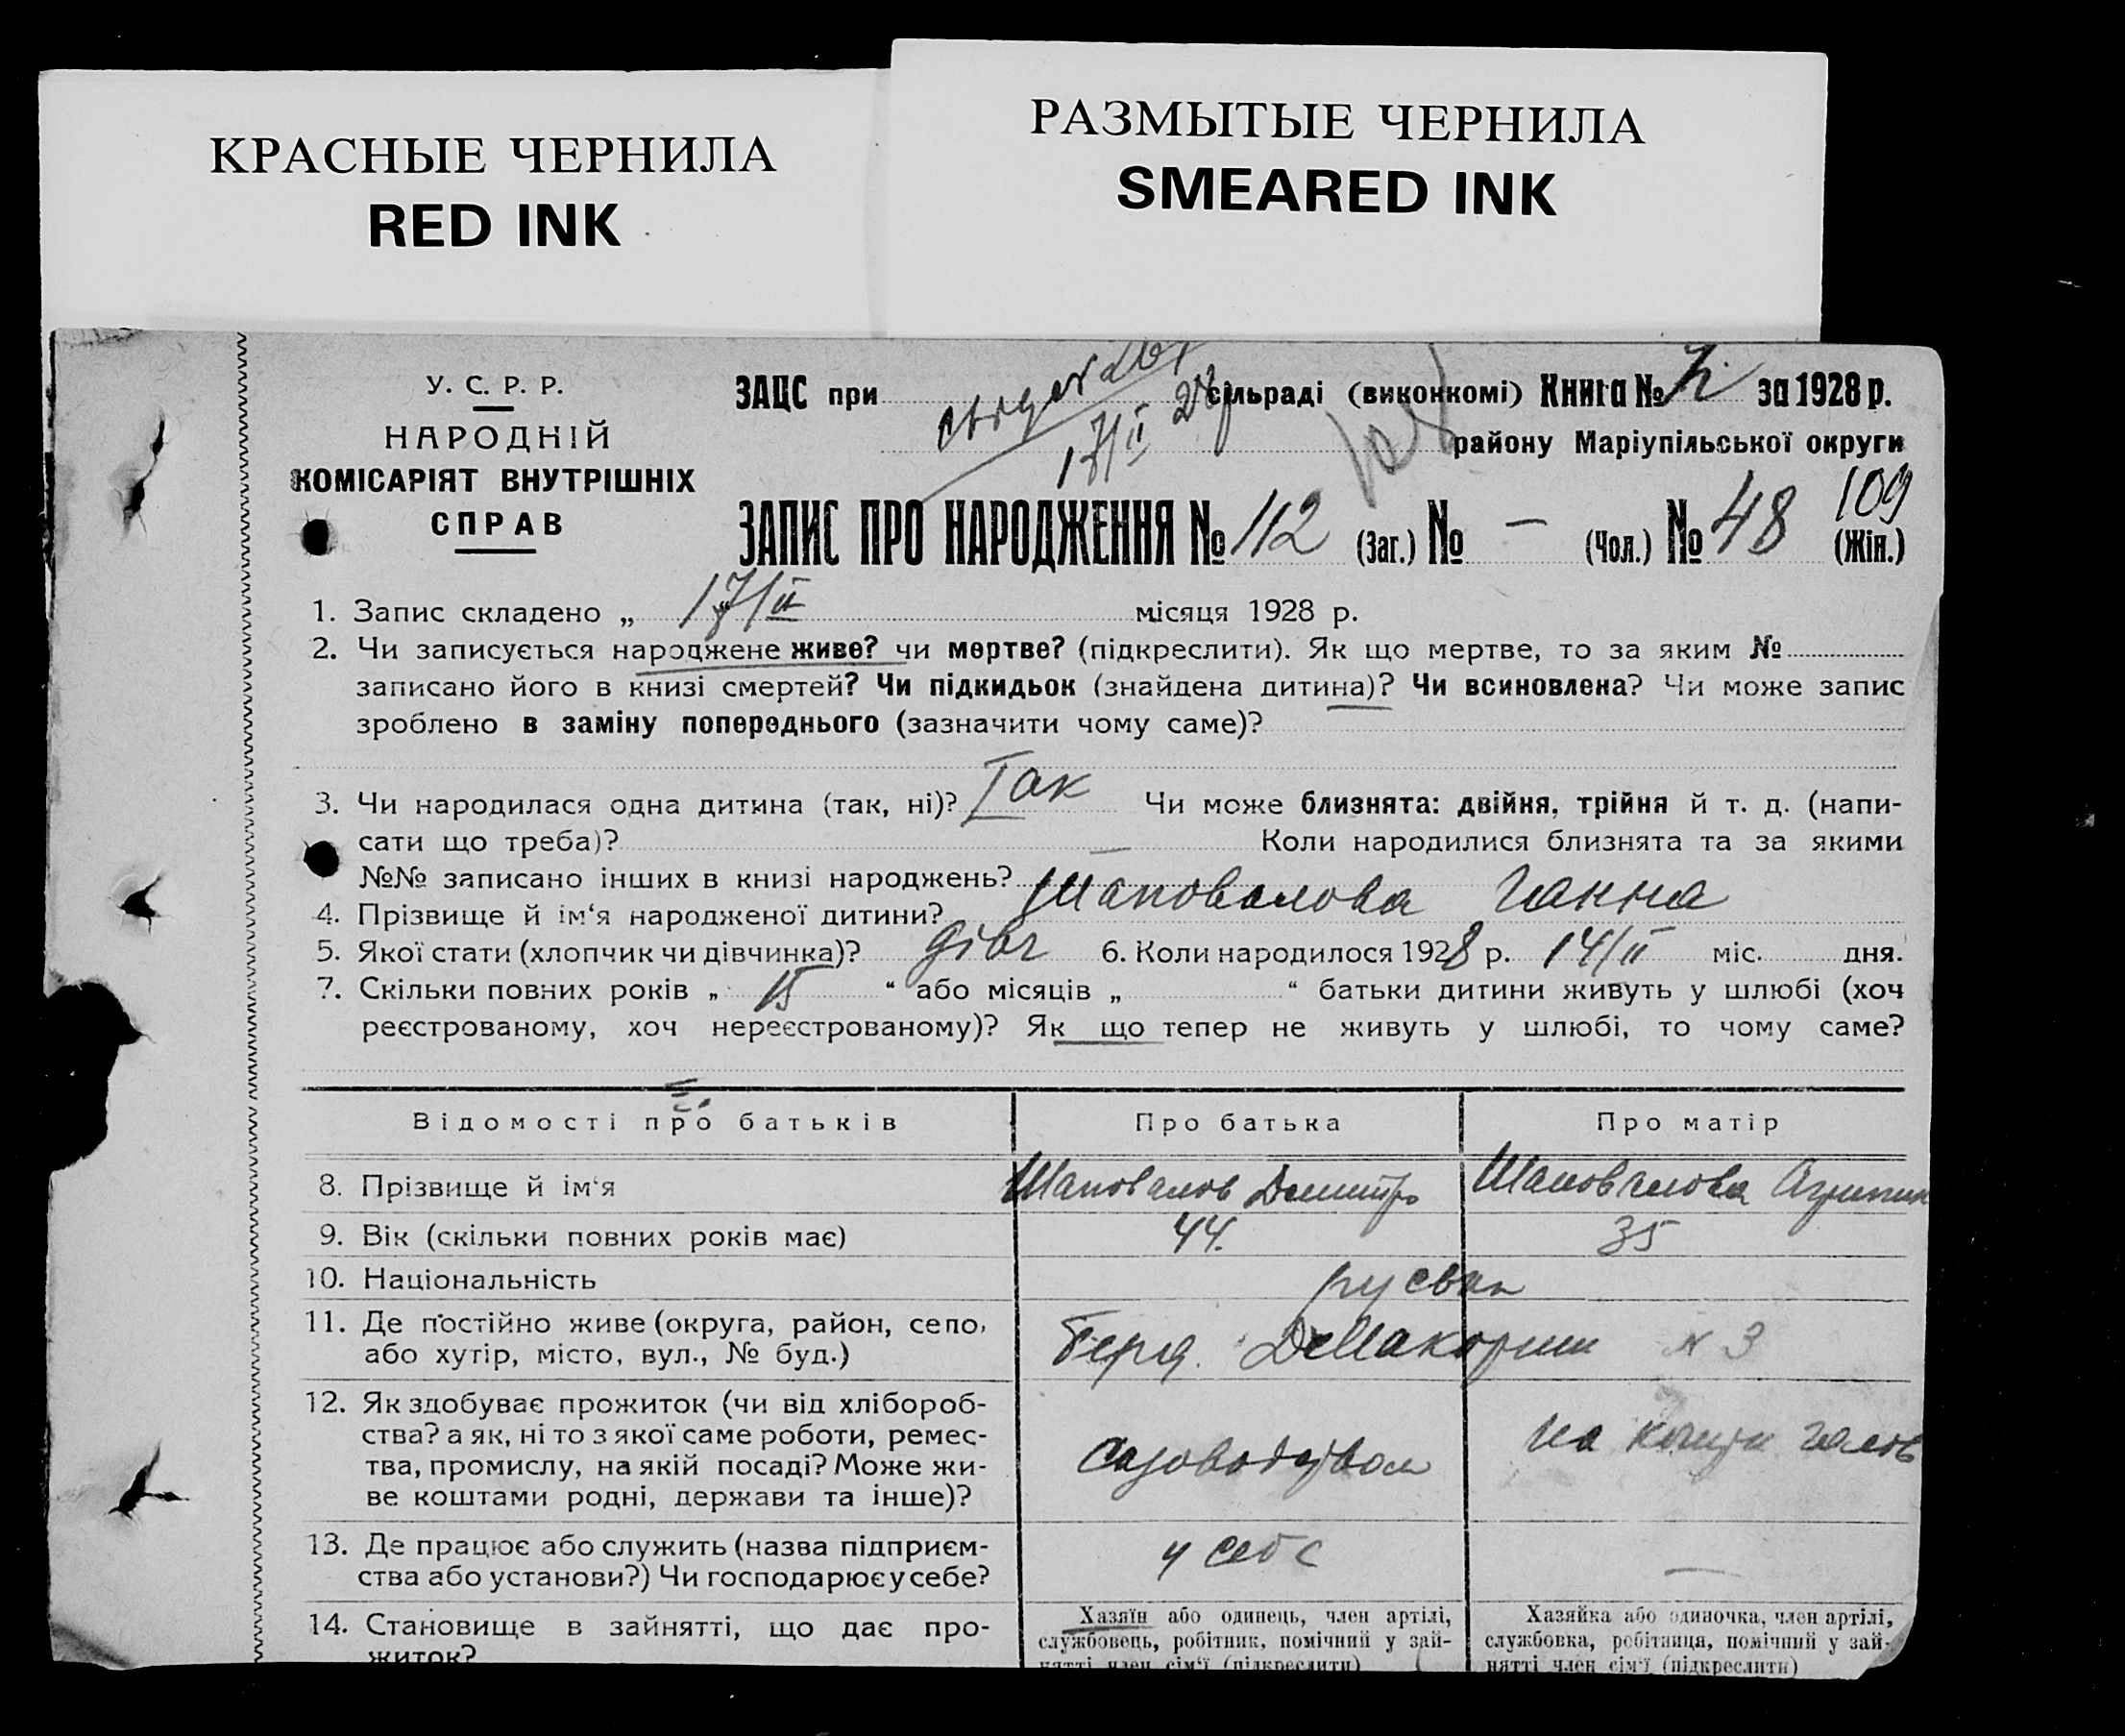 КРАСНЫЕ ЧЕРНИЛА
RED INK
РАЗМЫТЫЕ ЧЕРНИЛА
SMEARED INK
У. С. Р. Р.
НАРОДНІЙ
КОМІСАРІЯТ ВНУТРІШНІХ
СПРАВ
ЗАЦС при сільраді (виконкомі) Книга № за 1928 р.
17/II 28
району Маріупільської округи
109
ЗАПИС ПРО НАРОДЖЕННЯ № 112 (Заг.) № — (Чол.) № 48 (Жін.)
1. Запис складено „ 17/II місяця 1928 р.
2. Чи записується народжене живе? чи мертве? (підкреслити). Як що мертве, то за яким №
записано його в книзі смертей? Чи підкидьок (знайдена дитина)? Чи всиновлена? Чи може запис
зроблено в заміну попереднього (зазначити чому саме)?
3. Чи народилася одна дитина (так, ні)? Так Чи може близнята: двійня, трійня й т. д. (напи-
сати що треба)? — Коли народилися близнята та за якими
№№ записано інших в книзі народжень?
4. Прізвище й ім‘я народженої дитини? Шаповалова Ганна
5. Якої стати (хлопчик чи дівчинка)? дівч 6. Коли народилося 1928 р. 14/II міс. дня.
7. Скільки повних років „ 15 “ або місяців „ “ батьки дитини живуть у шлюбі (хоч
реєстрованому, хоч нереєстрованому)? Як що тепер не живуть у шлюбі, то чому саме?
Відомості про батьків Про батька Про матір
8. Прізвище й ім‘я Шаповалов Дмитро Шаповалова
9. Вік (скільки повних років має) 44. 35
10. Національність
11. Де постійно живе (округа, район, село,
або хутір, місто, вул., № буд.) № 3
12. Як здобуває прожиток (чи від хлібороб-
ства? а як, ні то з якої саме роботи, ремес-
тва, промислу, на якій посаді? Може жи-
ве коштами родні, держави та інше)?
13. Де працює або служить (назва підприєм- у себе —
ства або установи?) Чи господарює у себе?
14. Становище в зайнятті, що дає про-
житок?
Хазяїн або одинець, член артілі,
службовець, робітник, помічний у зай-
нятті член сім‘ї (підкреслити)
Хазяйка або одиночка, член артілі,
службовка, робітниця, помічний у зай-
нятті член сім‘ї (підкреслити)